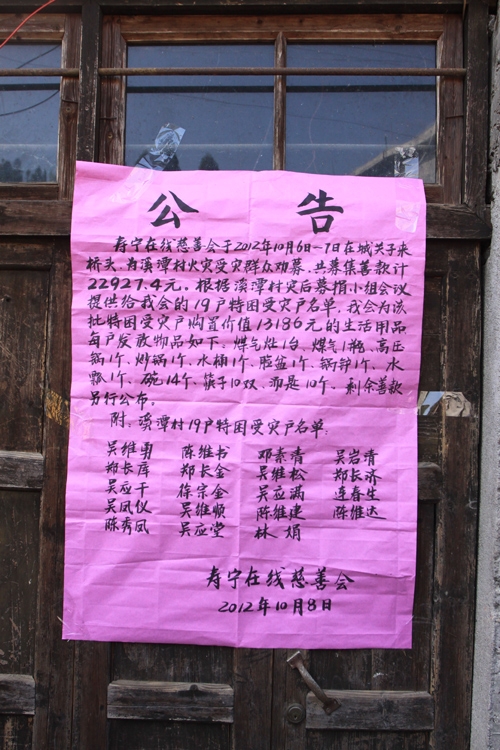 公告
寿宁在线慈善会于2012年10月6日-7日在城关子来
桥头、为溪潭村火灾受灾群众劝募、共募集善款计
22927.4元。根据溪潭村灾后募捐小组会议
提供给我会的19户特困受灾户名单,我会为该
批特困受灾户购置价值13186元的生活用品
每户发放物品如下:煤气灶1台、煤气1瓶、高压
锅1个、炒锅1个、水桶1个、脸盆1个、锅铲1个、水
瓢1个、碗14个、筷子10双、10个、剩余善款
另行公布。
附:溪潭村19户特困受灾户名单:
吴维勇 陈维书 邓素清 吴岩靖
郑长库 郑长金 吴维松 郑长济
吴应干 徐宗金 吴应满 连春生
吴凤仪 吴维顺 陈维建 陈维达
陈秀凤 吴应堂 林娟
寿宁在线慈善会
2012年10月8日